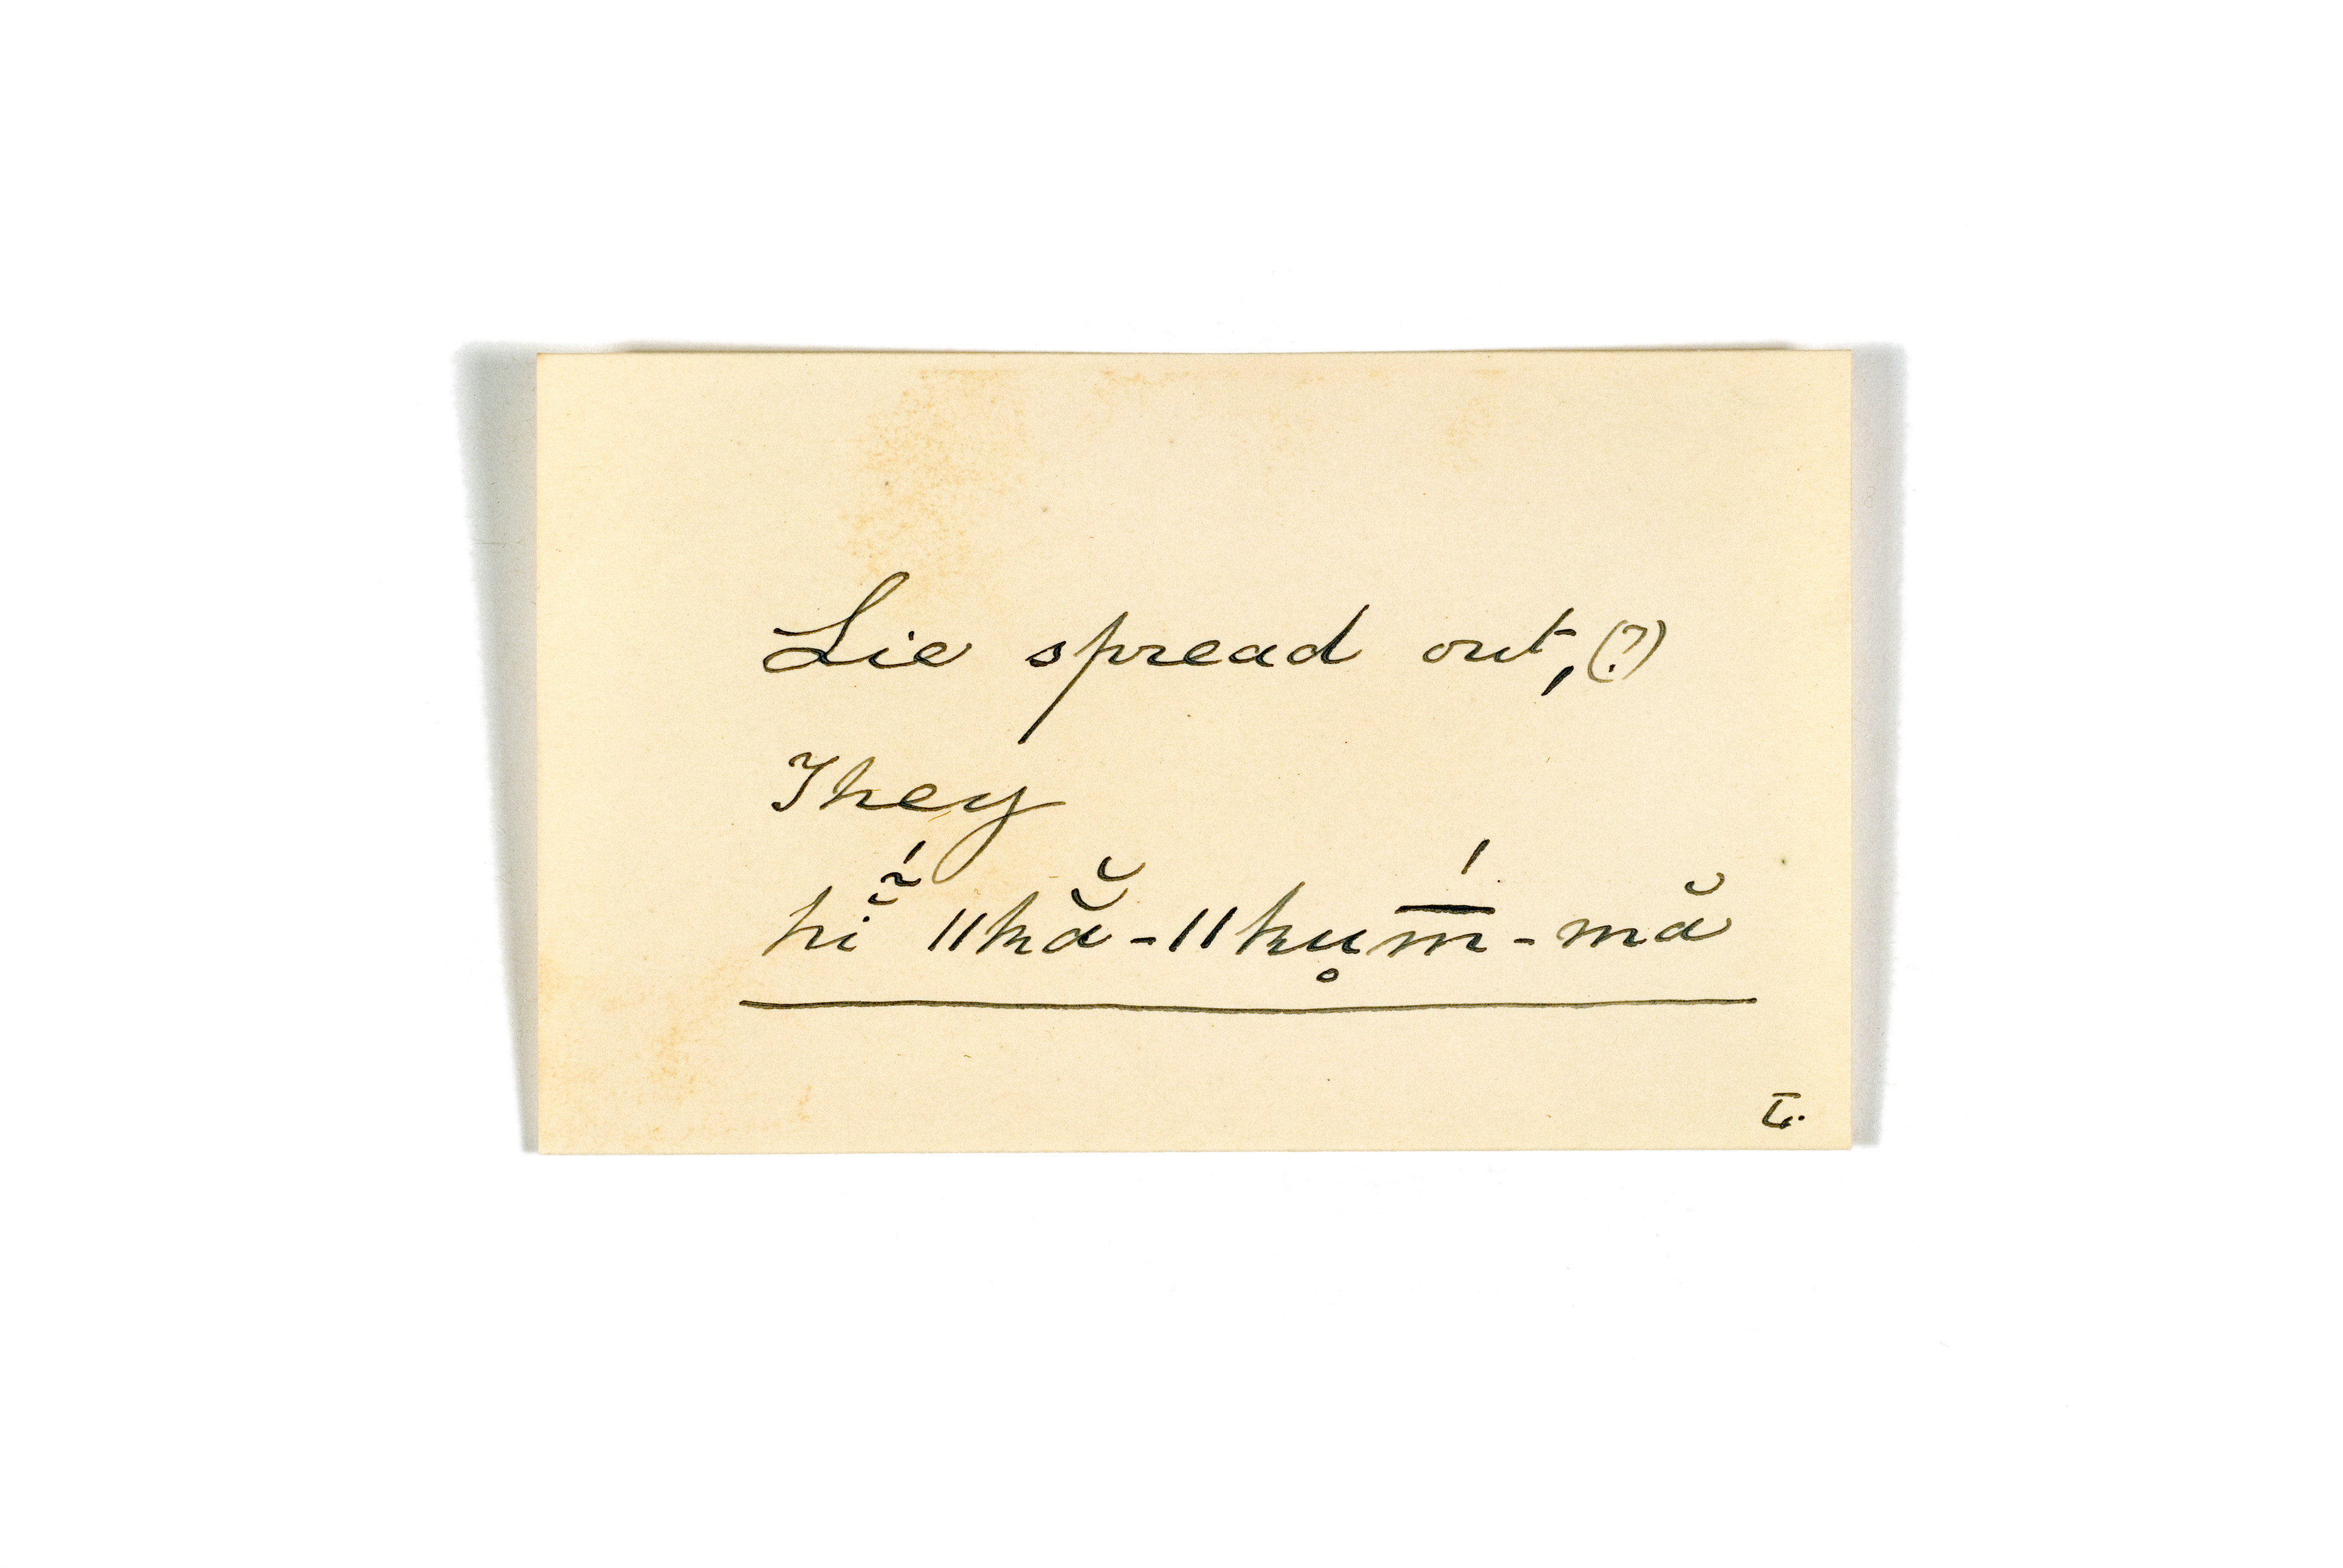 Lie spread out, (?)
They
hĭ̃́ ǁkă̆-ǁku̥m̄́-mă
L.